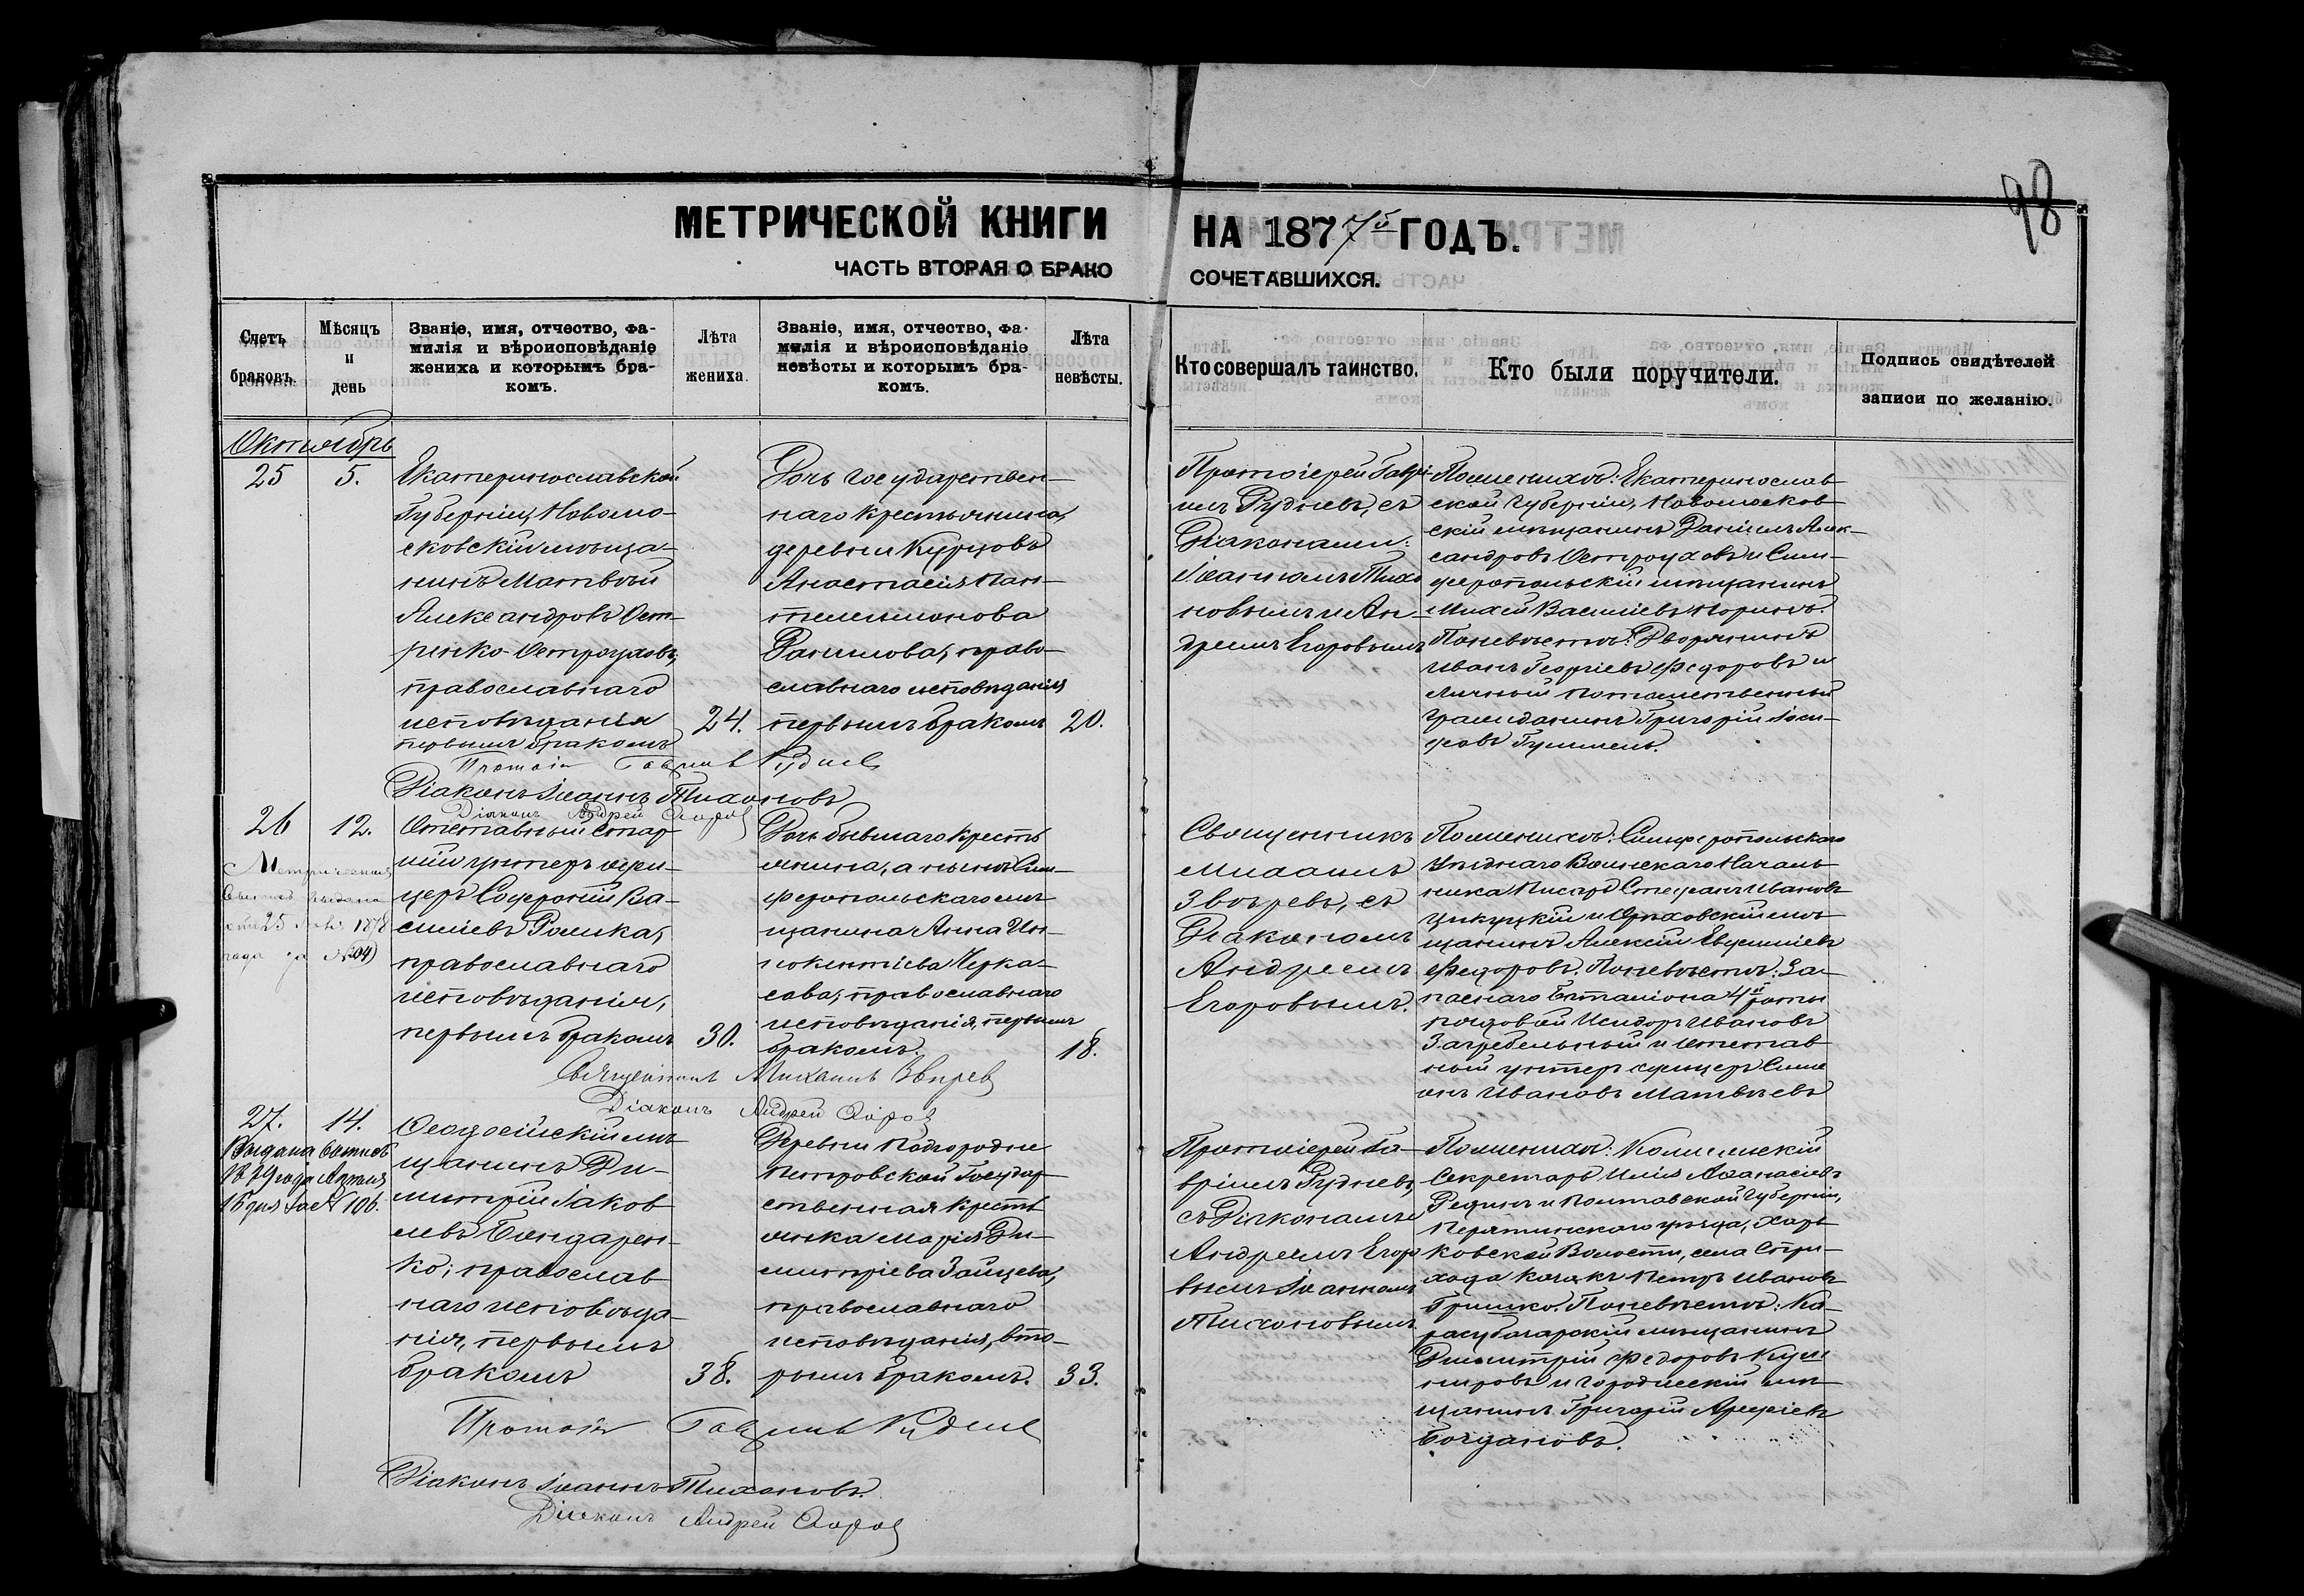 98
МЕТРИЧЕСКОЙ КНИГИ
НА 1877й ГОДЪ.
ЧАСТЬ ВТОРАЯ О БРАКО
СОЧЕТАВШИХСЯ.
Счетъ браковъ.
Мѣсяцъ и день
Званіе, имя, отчество, фа-
милія и вѣроисповѣданіе
жениха и которымъ бра-
комъ.
Лѣта жениха.
Званіе, имя, отчество, фа-
милія и вѣроисповѣданіе
невѣсты и которымъ бра-
комъ.
Лѣта невѣсты.
Кто совершалъ таинство.
Кто были поручители.
Подпись свидѣтелей
записи по желанію.
Октябрь
25
5.
Екатеринославской
Губерніи, Новомо-
сковскій мѣща-
нинъ Матвѣй
Александровъ Ост-
ровуховъ,
православнаго
исповѣданія
первымъ бракомъ
24.
Дочь государствен-
наго крестьянина,
деревни Курцовъ
Анастасія Пан-
телеимонова
Данилова, право-
славнаго исповѣданія
первымъ бракомъ
20.
Протоіерей Гаврі-
илъ Рудневъ, съ
Діаконами:
Іоанномъ Тихо
новымъ и Ан-
дреемъ Егоровымъ
По женихѣ: Екатеринослав-
ской губерніи, Новомосков-
скій мѣщанинъ Даніилъ Алек-
сандровъ Остроуховъ и Сим-
феропольскій мѣщанинъ
Михей Василіевъ
По невѣстѣ: Дворянинъ
Иванъ Георгіевъ Федоровъ и
личный потомственный
гражданинъ Григорій Іоси-
фовъ
Протоіе Гавріилъ Рудневъ
Діаконъ Іоаннъ Тихоновъ
Діаконъ Андрей Егоровъ
26
12.
Метрическая
выдана
25 1878
года за № 204)
Отставный стар
шій унтеръ офи-
церъ Софроній Ва-
силіевъ Рошка,
православнаго
исповѣданія,
первымъ бракомъ
30.
Дочь бывшаго кресть
янина, а нынѣ Сим-
феропольскаго мѣ-
щанина Анна Ин-
нокентіева Черка-
сова, православнаго
исповѣданія, первымъ
бракомъ.
18.
Священникъ
Михаилъ
Звѣревъ, съ
Діакономъ
Андреемъ
Егоровымъ.
По женихѣ: Симферопольскаго
Уѣзднаго Воинскаго Началь
ника Писарь Стефанъ Ивановъ
и Орѣховскій мѣ-
щанинъ Алексій Евфиміевъ
Федоровъ. По невѣстѣ: За-
паснаго Баталіона 4й роты
рядовой Исидоръ Ивановъ
Загребельный и Отстав
ной унтеръ офицеръ Симе
онъ Ивановъ Матвѣевъ
Священникъ Михаилъ Звѣревъ
Діаконъ Андрей Егоровъ
27.
14.
Выдана
1879 года Апрѣля
16 дня за № 106.
Ѳеодосійскій мѣ-
щанинъ Ди-
митрій Іаков
левъ Бондарен-
ко, православ
наго исповѣда-
нія, первымъ
бракомъ
38.
Деревни Подгородне
Петровской Государ
ственная кресть
янка Марія Ди-
митріева Зайцева,
православнаго
исповѣданія, вто-
рымъ бракомъ.
33.
Протоіерей Га-
вріилъ Рудневъ,
съ Діаконами
Андреемъ Егоро
вымъ Іоанномъ
Тихоновымъ.
По женихѣ: Коллежскій
Секретарь Илія Аѳанасіевъ
и Полтавской губерніи,
Пирятинскаго уѣзда, Харь
ковской Волости, села
козакъ Петръ Ивановъ
Гришко. По невѣстѣ: Ка-
расубазарскій мѣщанинъ
Димитрій Федоровъ
и мѣ-
щанинъ Григорій
Богдановъ.
Протоіе Гавріилъ Рудневъ
Діаконъ Іоаннъ Тихоновъ.
Діаконъ Андрей Егоровъ